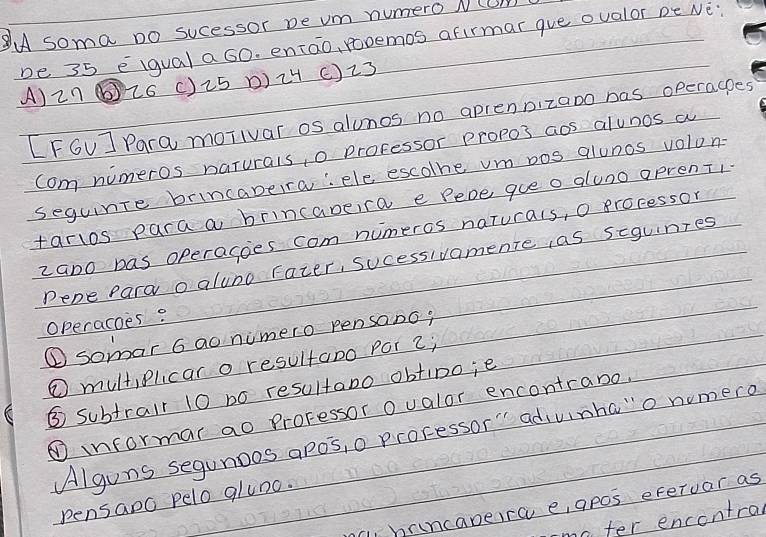 8) A soma do sucessor de um numero N com
de 35 é igual a 60. então, podemos afirmar que o valor de N é:
A) 27 b) 26 c) 25 D) 24 e) 23
[FGV] Para motivar os alunos no aprendizado das operações
com números naturais, o professor propôs aos alunos a
seguinte brincadeira: ele escolhe um dos alunos volun-
tarios para a brincadeira e pede que o aluno aprenti-
zado das operações com números naturais, o professor
pede para o aluno fazer, sucessivamente, as seguintes
operações:
① somar 6 ao número pensado;
② multiplicar o resultado por 2;
③ subtrair 10 do resultado obtido; e
④ informar ao professor o valor encontrado.
Alguns segundos após, o professor "adivinha" o numero
pensado pelo aluno.
brincadeira e, após efetuar as
ter encontra